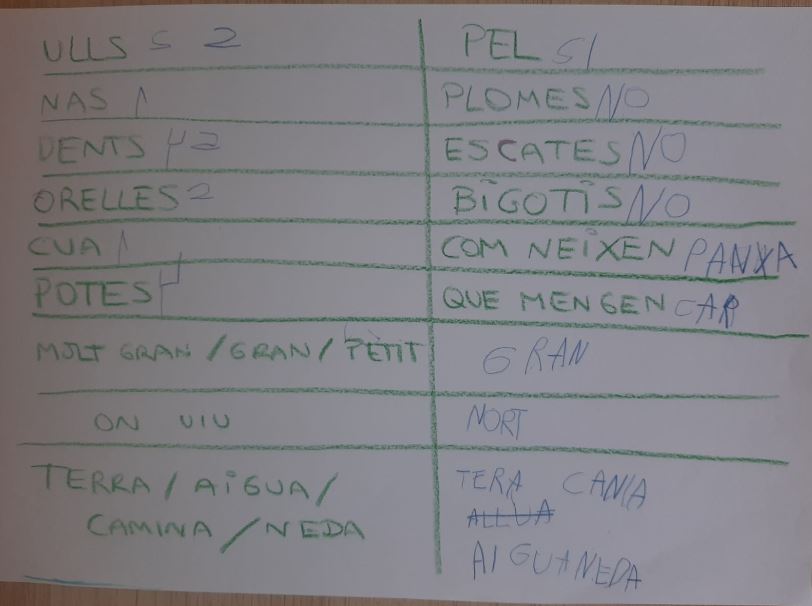 ULLS S 2
PEL SI
NAS 1
PLOMES NO
DENTS 42
ESCATES NO
ORELLES 2
BIGOTIS NO
CUA 1
COM NEIXEN PANXA
POTES 4
QUE MENGEN CAR
MOLT GRAN / GRAN / PETIT
GRAN
ON VIU
NORT
TERRA / AIGUA /
CAMINA / NEDA
TERA CANIA
ALLUA
AIGUANEDA